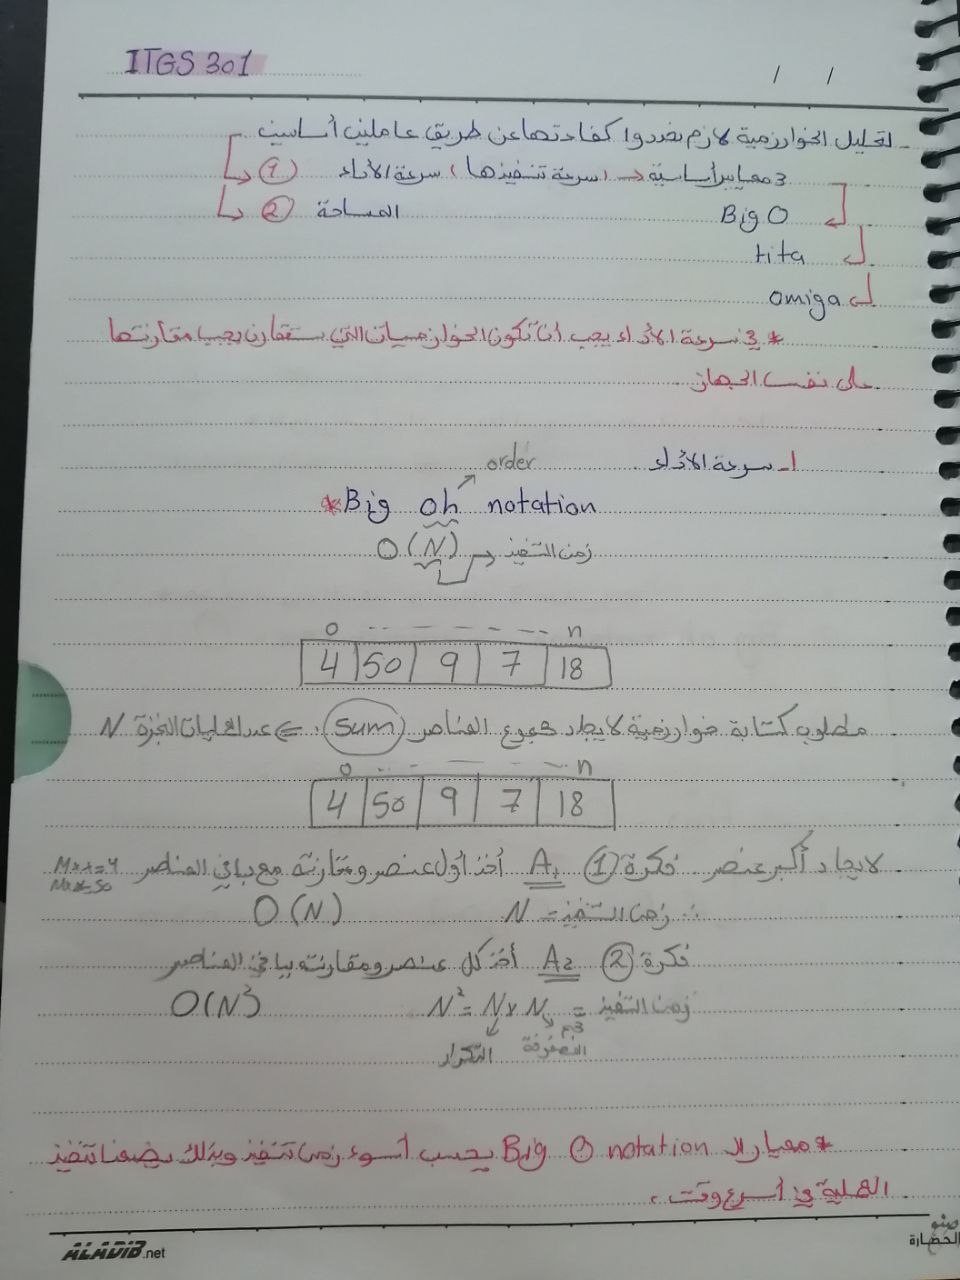 ITGS 301
/ /
لتحليل الخوارزمية لازم نحددوا كفاءتها عن طريق عاملين أساسين
① سرعة الأداء (سرعة تنفيذها) → 3 معايير أساسية
② المساحة
Big O
tita
omiga
* في سرعة الأداء يجب أن تكون الخوارزميات التي ستقارن يجب مقارنتها
على نفس الجهاز
1- سرعة الأداء
order
*Big oh notation
O(N) → زمن التنفيذ
0 n
4 50 9 7 18
مطلوب كتابة خوارزمية لايجاد مجموع العناصر (sum) . => عدد العمليات المنجزة N
0 n
4 50 9 7 18
لايجاد أكبر عنصر فكرة ① A1 أخذ أول عنصر ومقارنته مع باقي العناصر Max=4
Max=50
∴ زمن التنفيذ = N O(N)
فكرة ② A2 أخذ كل عنصر ومقارنته بباقي العناصر
زمن التنفيذ = N² = N x N O(N²)
التكرار المصفوفة
* معيار الـ Big O notation يحسب أسوء زمن تنفيذ وبذلك يضمن تنفيذ
العملية في أسرع وقت .
ALADIB.net
صنو الحضارة